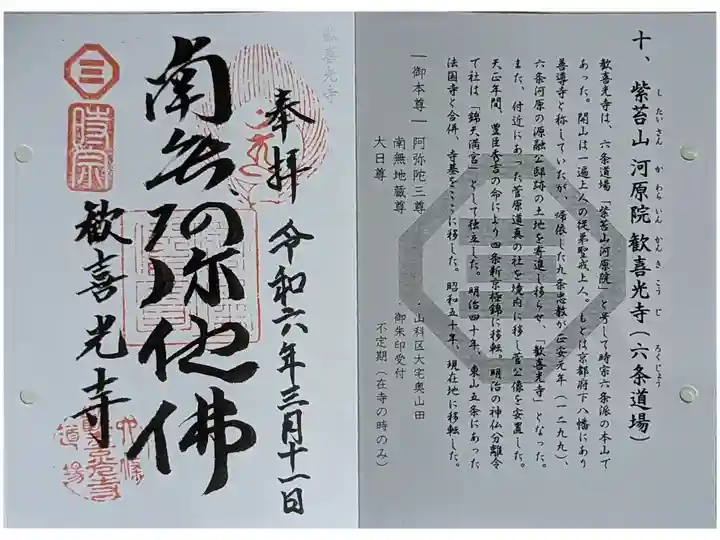 十、紫苔山 河原院 歓喜光寺(六条道場)
したいさん かわらいん かんきこうじ ろくじょう
歓喜光寺は、六条道場「紫苔山河原院」と号して時宗六条派の本山で
あった。開山は一遍上人の従弟聖戒上人。もとは京都府下八幡にあり
善導寺と称していたが、帰依した九条忠教が正安元年(一二九九)、
六条河原の源融公邸跡の土地を寄進し移らせ、「歓喜光寺」となった。
また、付近にあった菅原道真の社を境内に移し菅公像を安置した。
天正年間、豊臣秀吉の命により四条新京極錦に移転。明治の神仏分離令
で社は「錦天満宮」として独立した。明治四十年、東山五条にあった
法国寺と合併、寺基をここに移した。昭和五十年、現在地に移転した。
―御本尊― 阿弥陀三尊
南無地蔵尊
大日尊
・山科区大宅奥山田
・御朱印受付
不定期(在寺の時のみ)
歓喜光寺
奉拝 令和六年三月十一日
南無阿弥陀佛
歓喜光寺
三
時宗
六條
歡喜光寺
道場